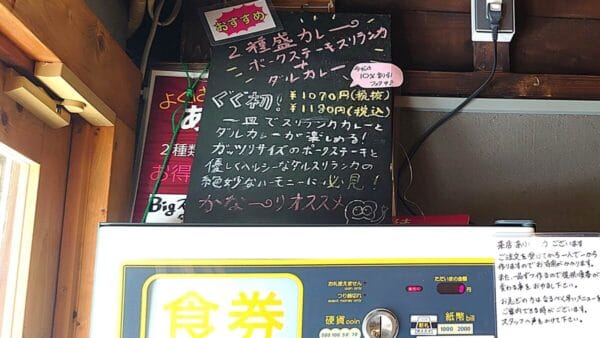 おすすめ!
2種盛カレー
ポークステーキスリランカ
+
ダルカレー
10%割引
ぐぐ初! ¥1070円(税抜)
¥1180円(税込)
一皿でスリランカカレーと
ダルカレーが楽しめる!
ガッツリサイズのポークステーキと
優しくヘルシーなダルスリランカの
絶妙なハーモニーに必見!
かな〜りオススメ
よくば
あ
2種類
お得
Big
食券
お札使えません
つり銭切れ
硬貨coin
ただいまの金額
円
紙幣bill
1000 2000
ございます
ご注文を受けてから一人で一から
作りますのでお時間がかかります。
また、一品ずつ作るので提供順番が
変わる事をお許し下さい。
お急ぎの方はなるべく早いメニューを
ご案内できる時がございます。
スタッフへ声をかけて下さい。